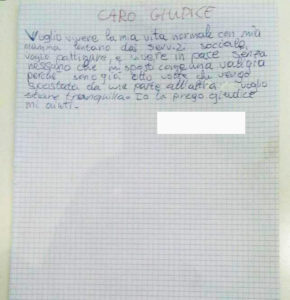 CARO GIUDICE
Voglio vivere la mia vita normale con mia
mamma lontano dai servizi sociale,
voglio pattinare, e vivere in pace senza
nessuno che mi sposti come una valigia
perché sono già otto volte che vengo
spostata da una parte all'altra. Voglio
stare tranquilla. Io la prego giudice
mi aiuti.